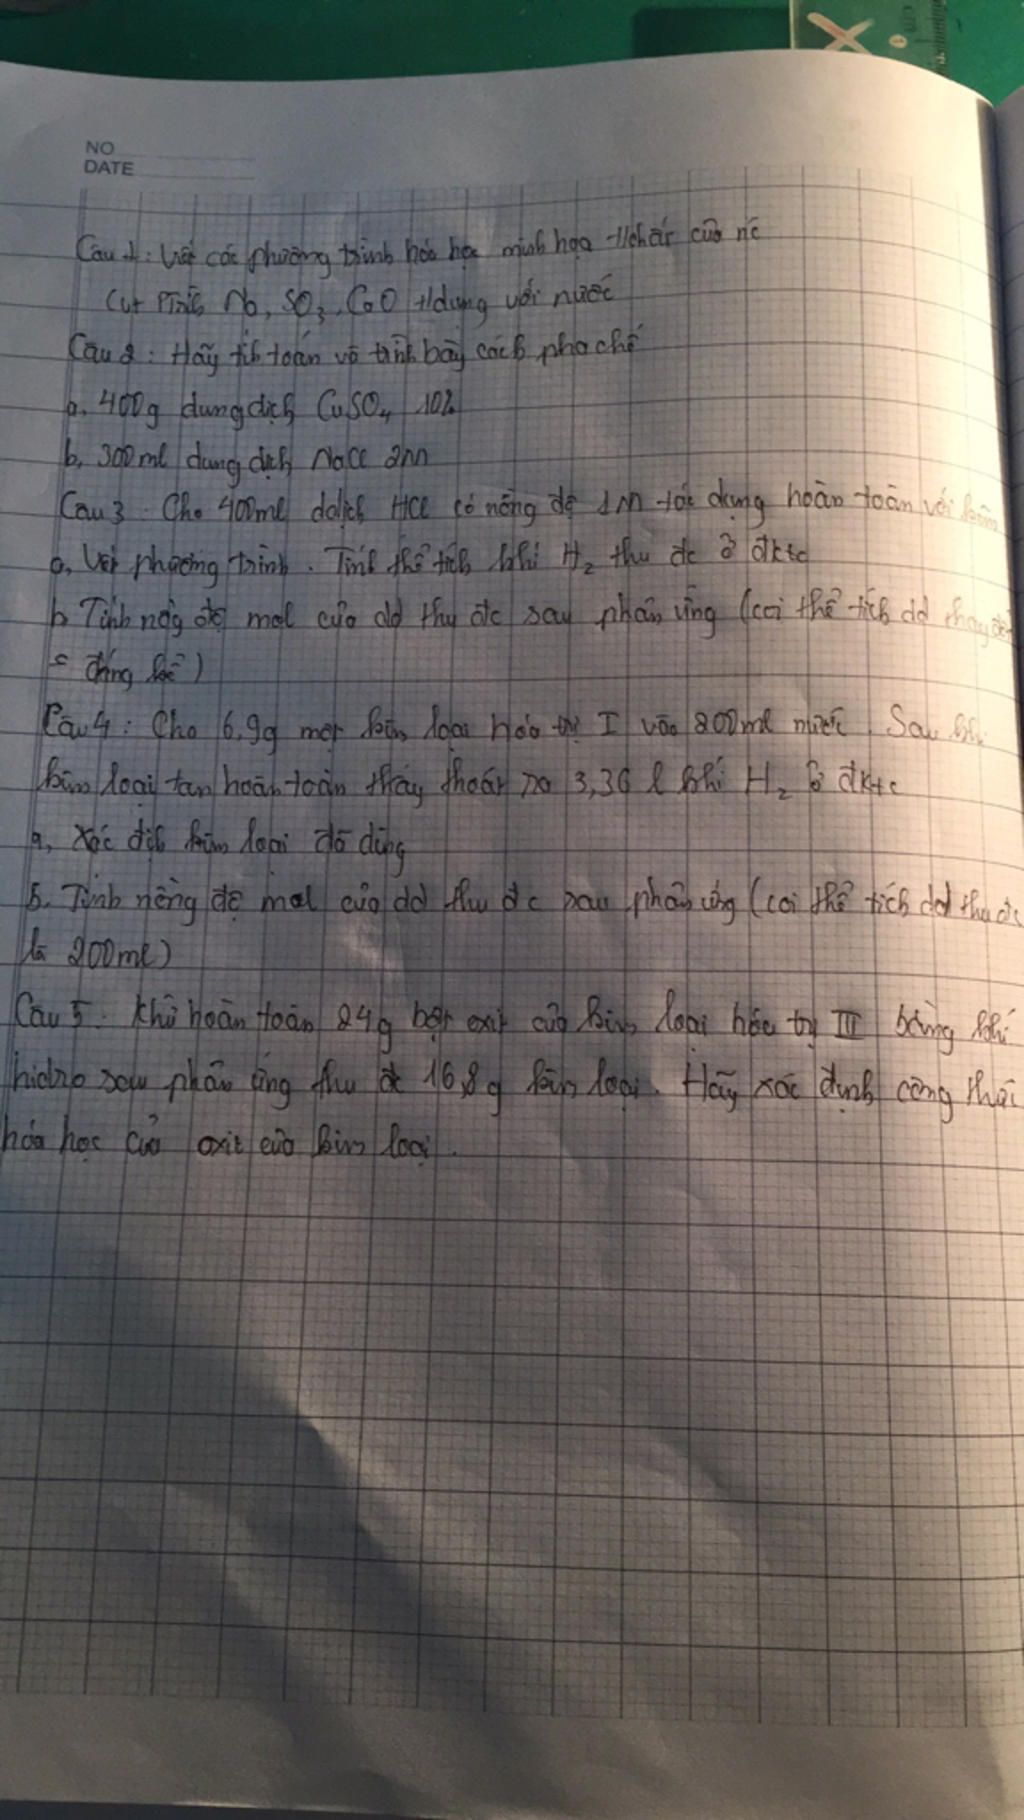 NO
DATE
Câu 1: Viết các phương trình hóa học minh họa t/chất của nc
Na, SO3, CaO t/dụng với nước
Câu 2: Hãy tính toán và trình bày cách pha chế
a, 400g dung dịch CuSO4 10%
b, 300ml dung dịch NaCl 2M
Câu 3: Cho 400ml d dịch HCl có nồng độ 1M tác dụng hoàn toàn với
a, Viết phương trình. Tính thể tích khí H2 thu đc ở đktc
b Tính nồng độ mol của dd thu đc sau phản ứng (coi thể tích dd thay
đáng kể)
Câu 4: Cho 6,9g một kim loại hóa trị I vào 200ml nước. Sau khi
kim loại tan hoàn toàn thấy thoát ra 3,36 l khí H2 ở đktc
a, Xác định kim loại đã dùng
b. Tính nồng độ mol của dd thu đc sau phản ứng (coi thể tích dd thu đc
là 200ml)
Câu 5: Khử hoàn toàn 24g bột oxit của kim loại hóa trị III bằng khí
hidro sau phản ứng thu đc 16,8g kim loại. Hãy xác định công thức
hóa học của oxit của kim loại.
cm